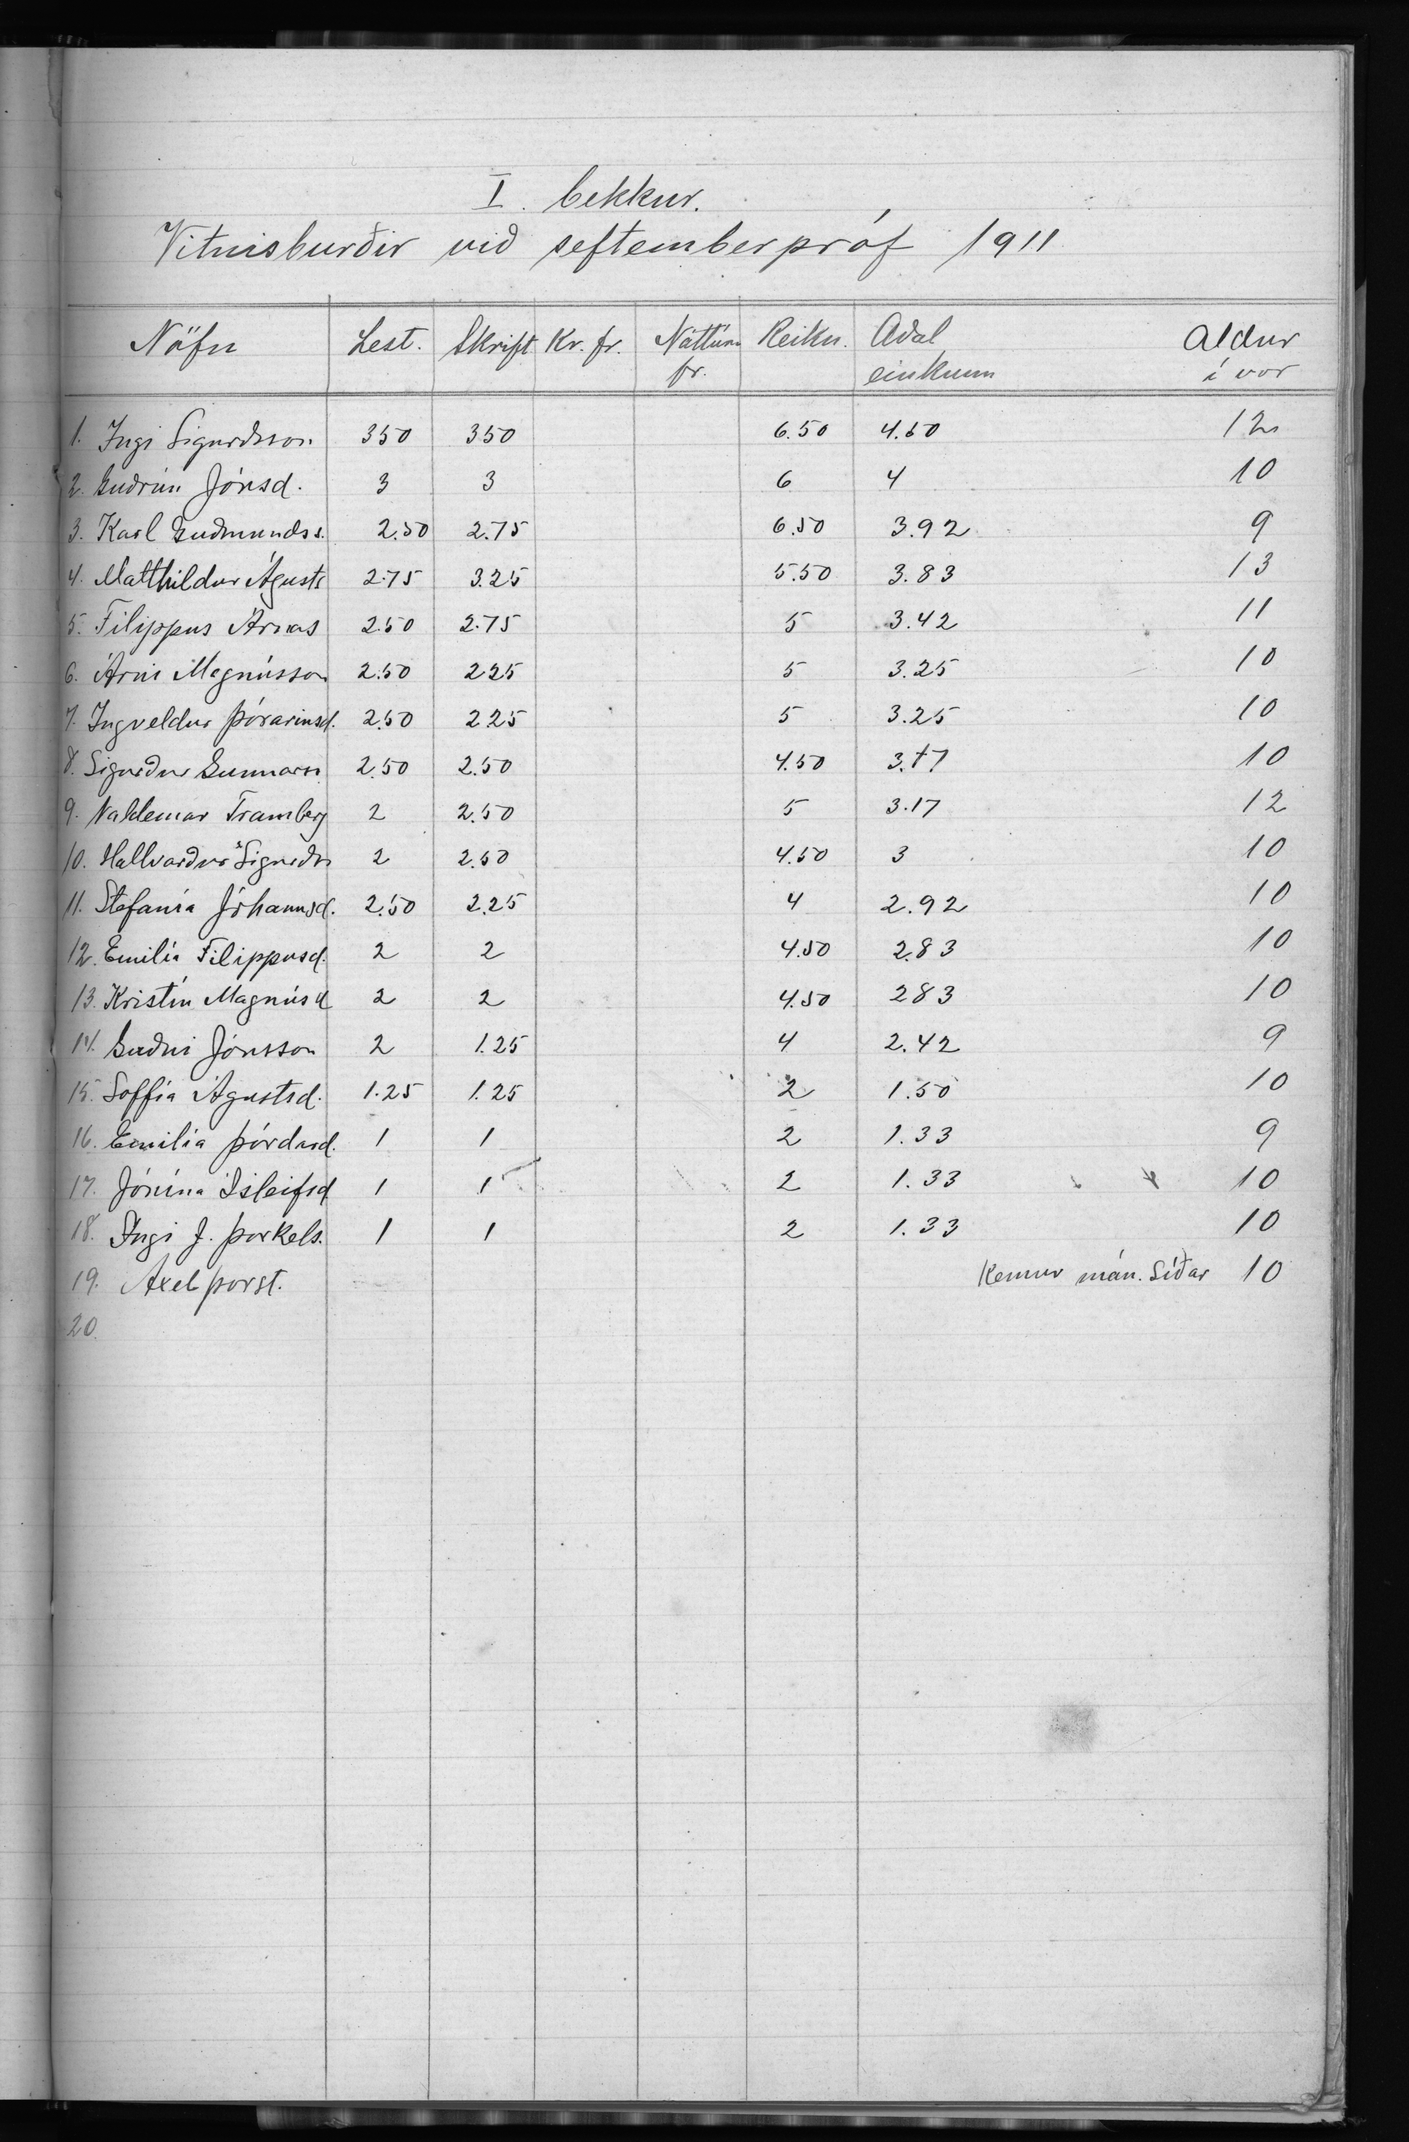 I. bekkur.
Vitnisburðir við septemberpróf 1911
Nöfn Lest. Skrift Kr. fr. Náttúru fr. Reikn. Aðal einkunn Aldur í vor
1. Ingi Sigurðsson 350 350 6.50 4.50 12
2. Guðrún Jónsd. 3 3 6 4 10
3. Karl Guðmundss. 2.50 2.75 6.50 3.92 9
4. Matthildur Ágústs 2.75 3.25 5.50 3.83 13
5. Filippus Árnas 2.50 2.75 5 3.42 11
6. Árni Magnússon 2.50 225 5 3.25 10
7. Ingveldur Þórarinsd. 2.50 225 5 3.25 10
8. Sigurður Gunnarss 2.50 2.50 4.50 3.17 10
9. Valdemar Tranberg 2 2.50 5 3.17 12
10. Hallvarður Sigurðs 2 2.50 4.50 3 10
11. Stefanía Jóhannsd. 2.50 2.25 4 2.92 10
12. Emilía Filippusd. 2 2 4.50 2.83 10
13. Kristín Magnúsd 2 2 4.50 283 10
14. Guðni Jónsson 2 1.25 4 2.42 9
15. Soffía Ágústsd. 1.25 1.25 2 1.50 10
16. Emilía Þórðard. 1 1 2 1.33 9
17. Jónína Ísleifsd 1 1 2 1.33 10
18. Ingi J. Þorkels. 1 1 2 1.33 10
19. Axel Þorst. Kemur mán. síðar 10
20.